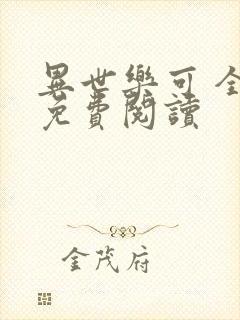 異世樂可 全
免費閱讀
金茂府